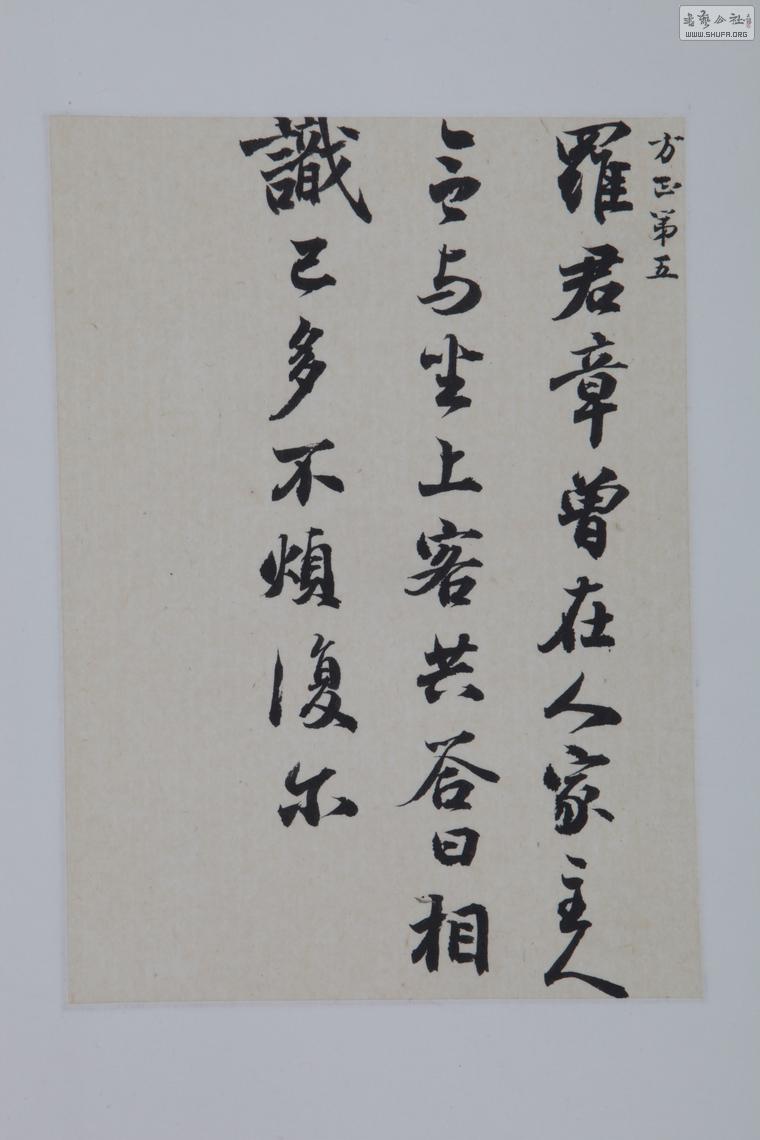 方正第五
羅君章曾在人家主人
令与坐上客共答曰相
識已多不煩復尔
書藝公社
WWW.SHUFA.ORG